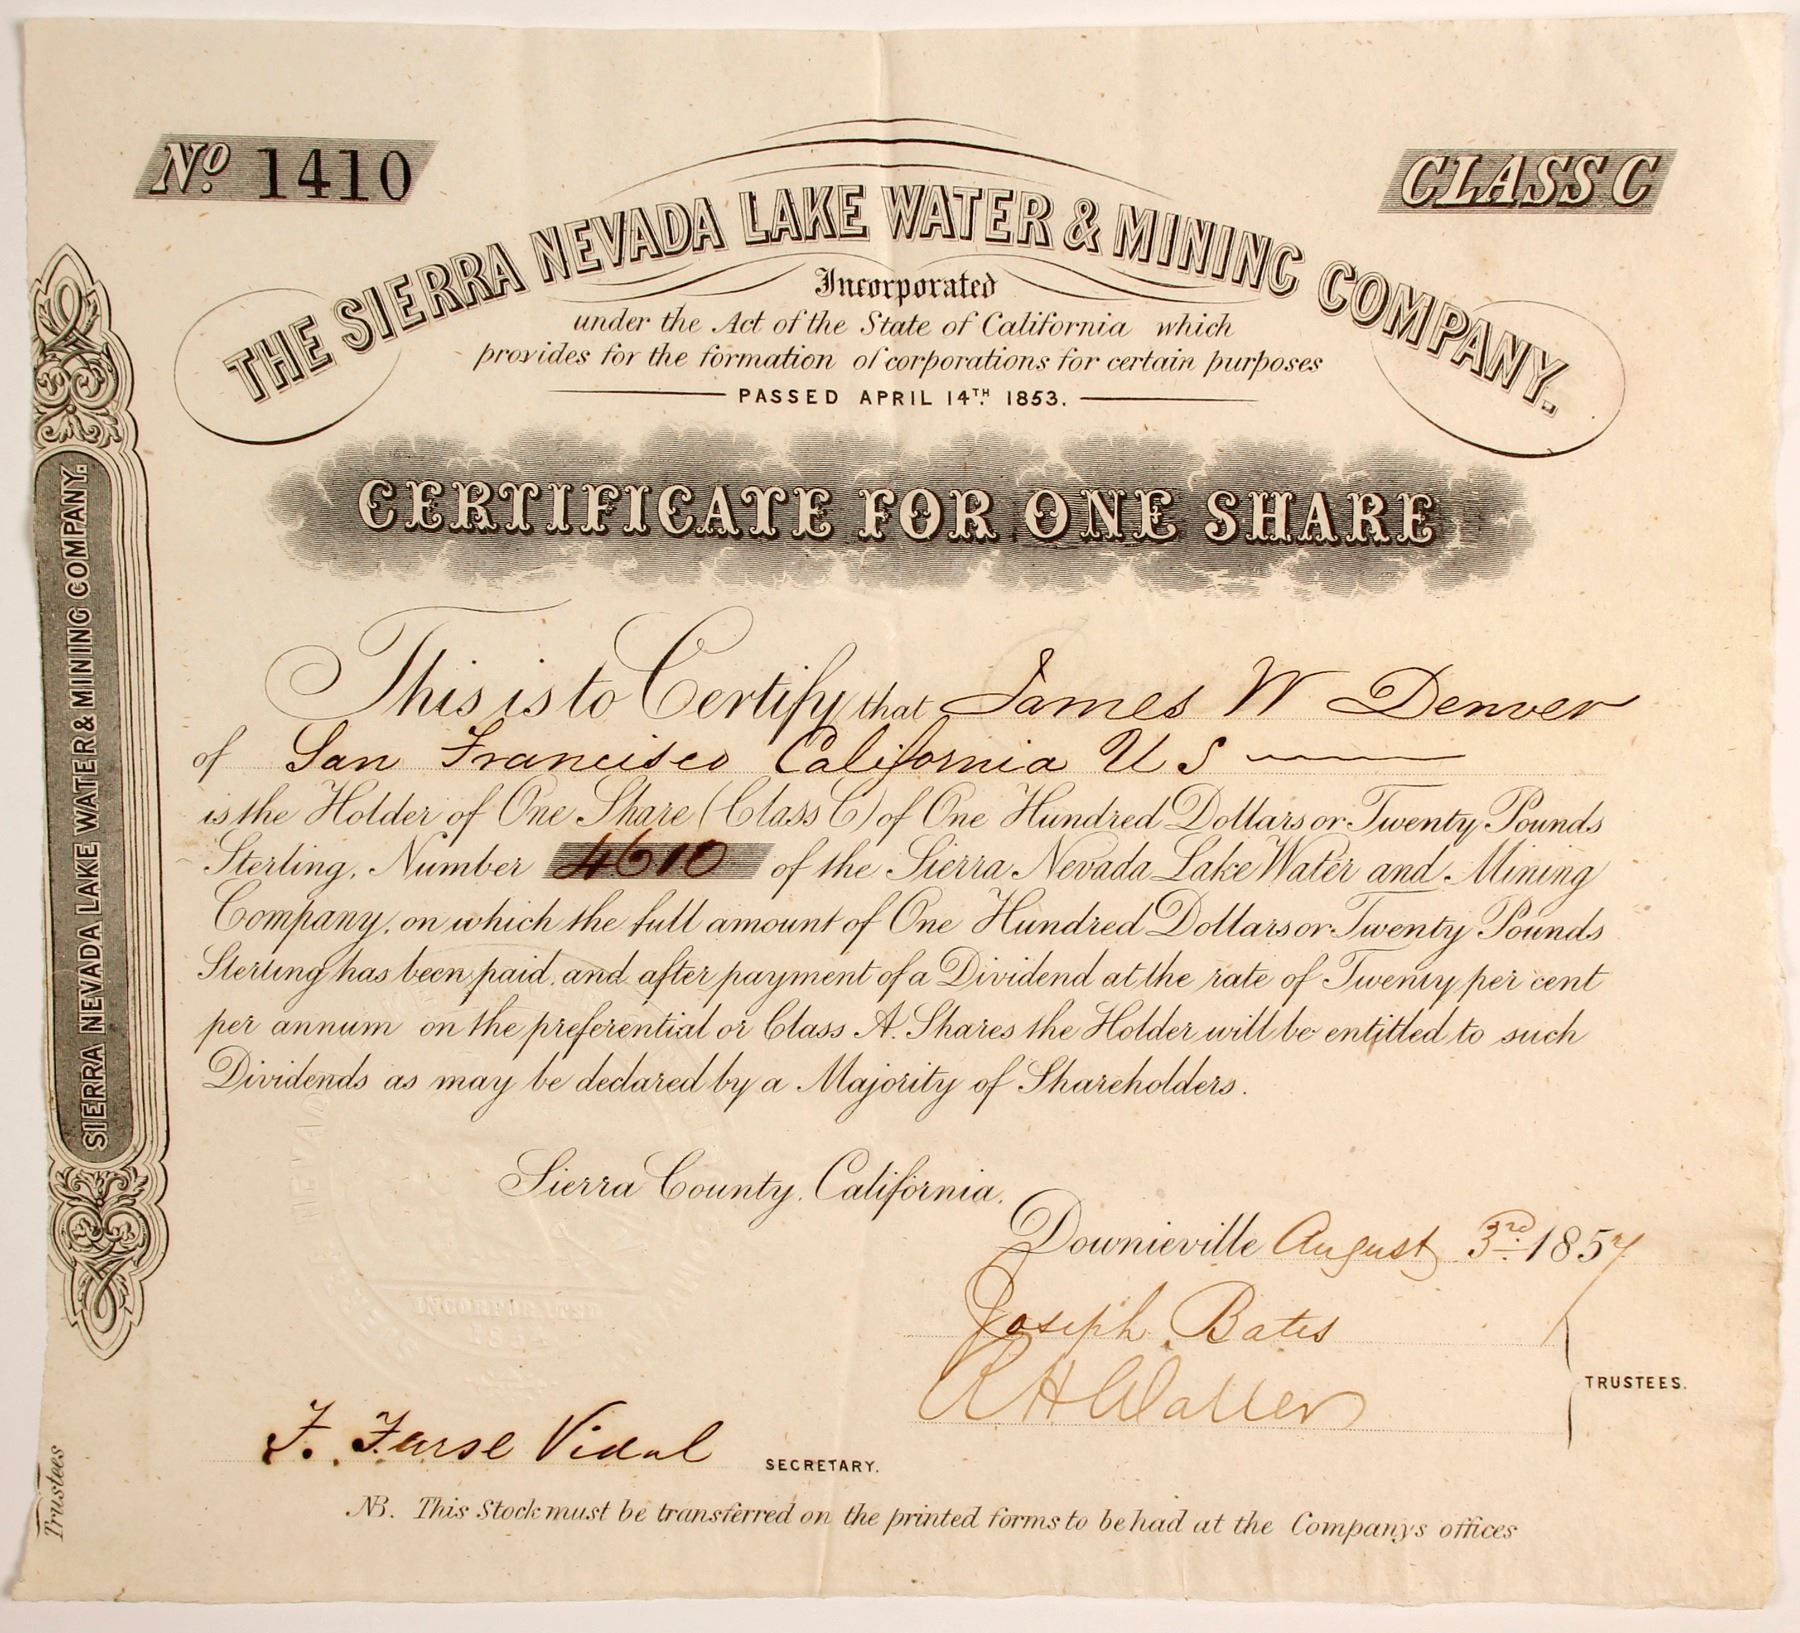 No. 1410
CLASS C
THE SIERRA NEVADA LAKE WATER & MINING COMPANY.
Incorporated
under the Act of the State of California which
provides for the formation of corporations for certain purposes
PASSED APRIL 14TH. 1853.
CERTIFICATE FOR ONE SHARE
This is to Certify that James W Denver
of San Francisco California U S
is the Holder of One Share (Class C) of One Hundred Dollars or Twenty Pounds
Sterling, Number 4610 of the Sierra Nevada Lake Water and Mining
Company, on which the full amount of One Hundred Dollars or Twenty Pounds
Sterling has been paid, and after payment of a Dividend at the rate of Twenty per cent
per annum on the preferential or Class A. Shares the Holder will be entitled to such
Dividends as may be declared by a Majority of Shareholders.
Sierra County, California.
Downieville August 3rd. 1857
Joseph Bates
R H Waller
TRUSTEES.
F. Furse Vidal
SECRETARY.
NB. This Stock must be transferred on the printed forms to be had at the Companys offices
SIERRA NEVADA LAKE WATER & MINING COMPANY.
Trustees
INCORPORATED